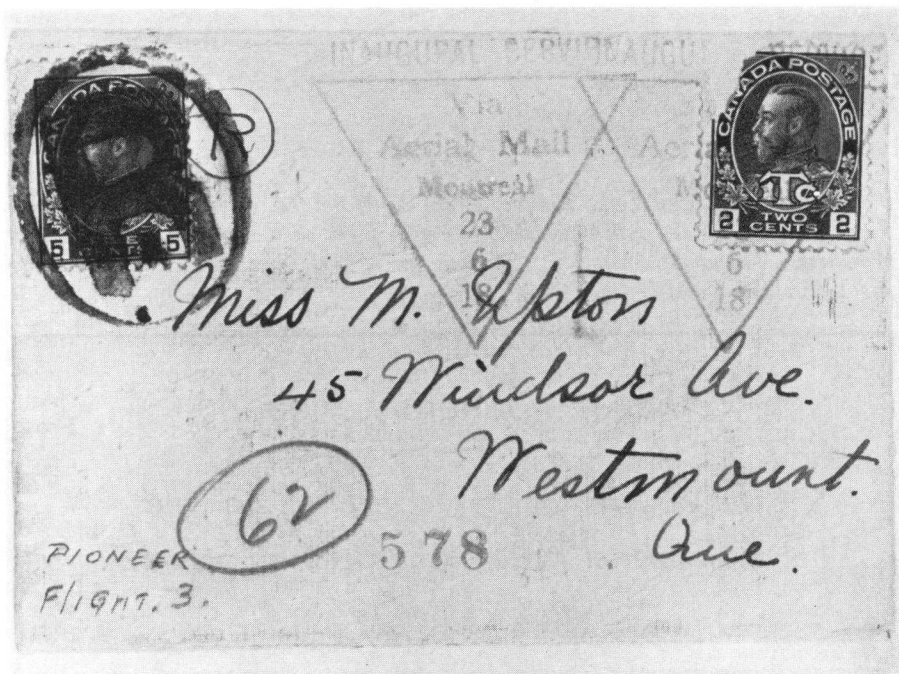 INAUGURAL SERVI INAUGU
Via
Aerial Mail
Montreal
23
6
18
Ae
M
6
18
R
5 5
CANADA POSTAGE
1Tc
2 TWO CENTS 2
Miss M. Upton
45 Windsor Ave.
Westmount.
Que.
62
578
PIONEER
FlIGHT. 3.